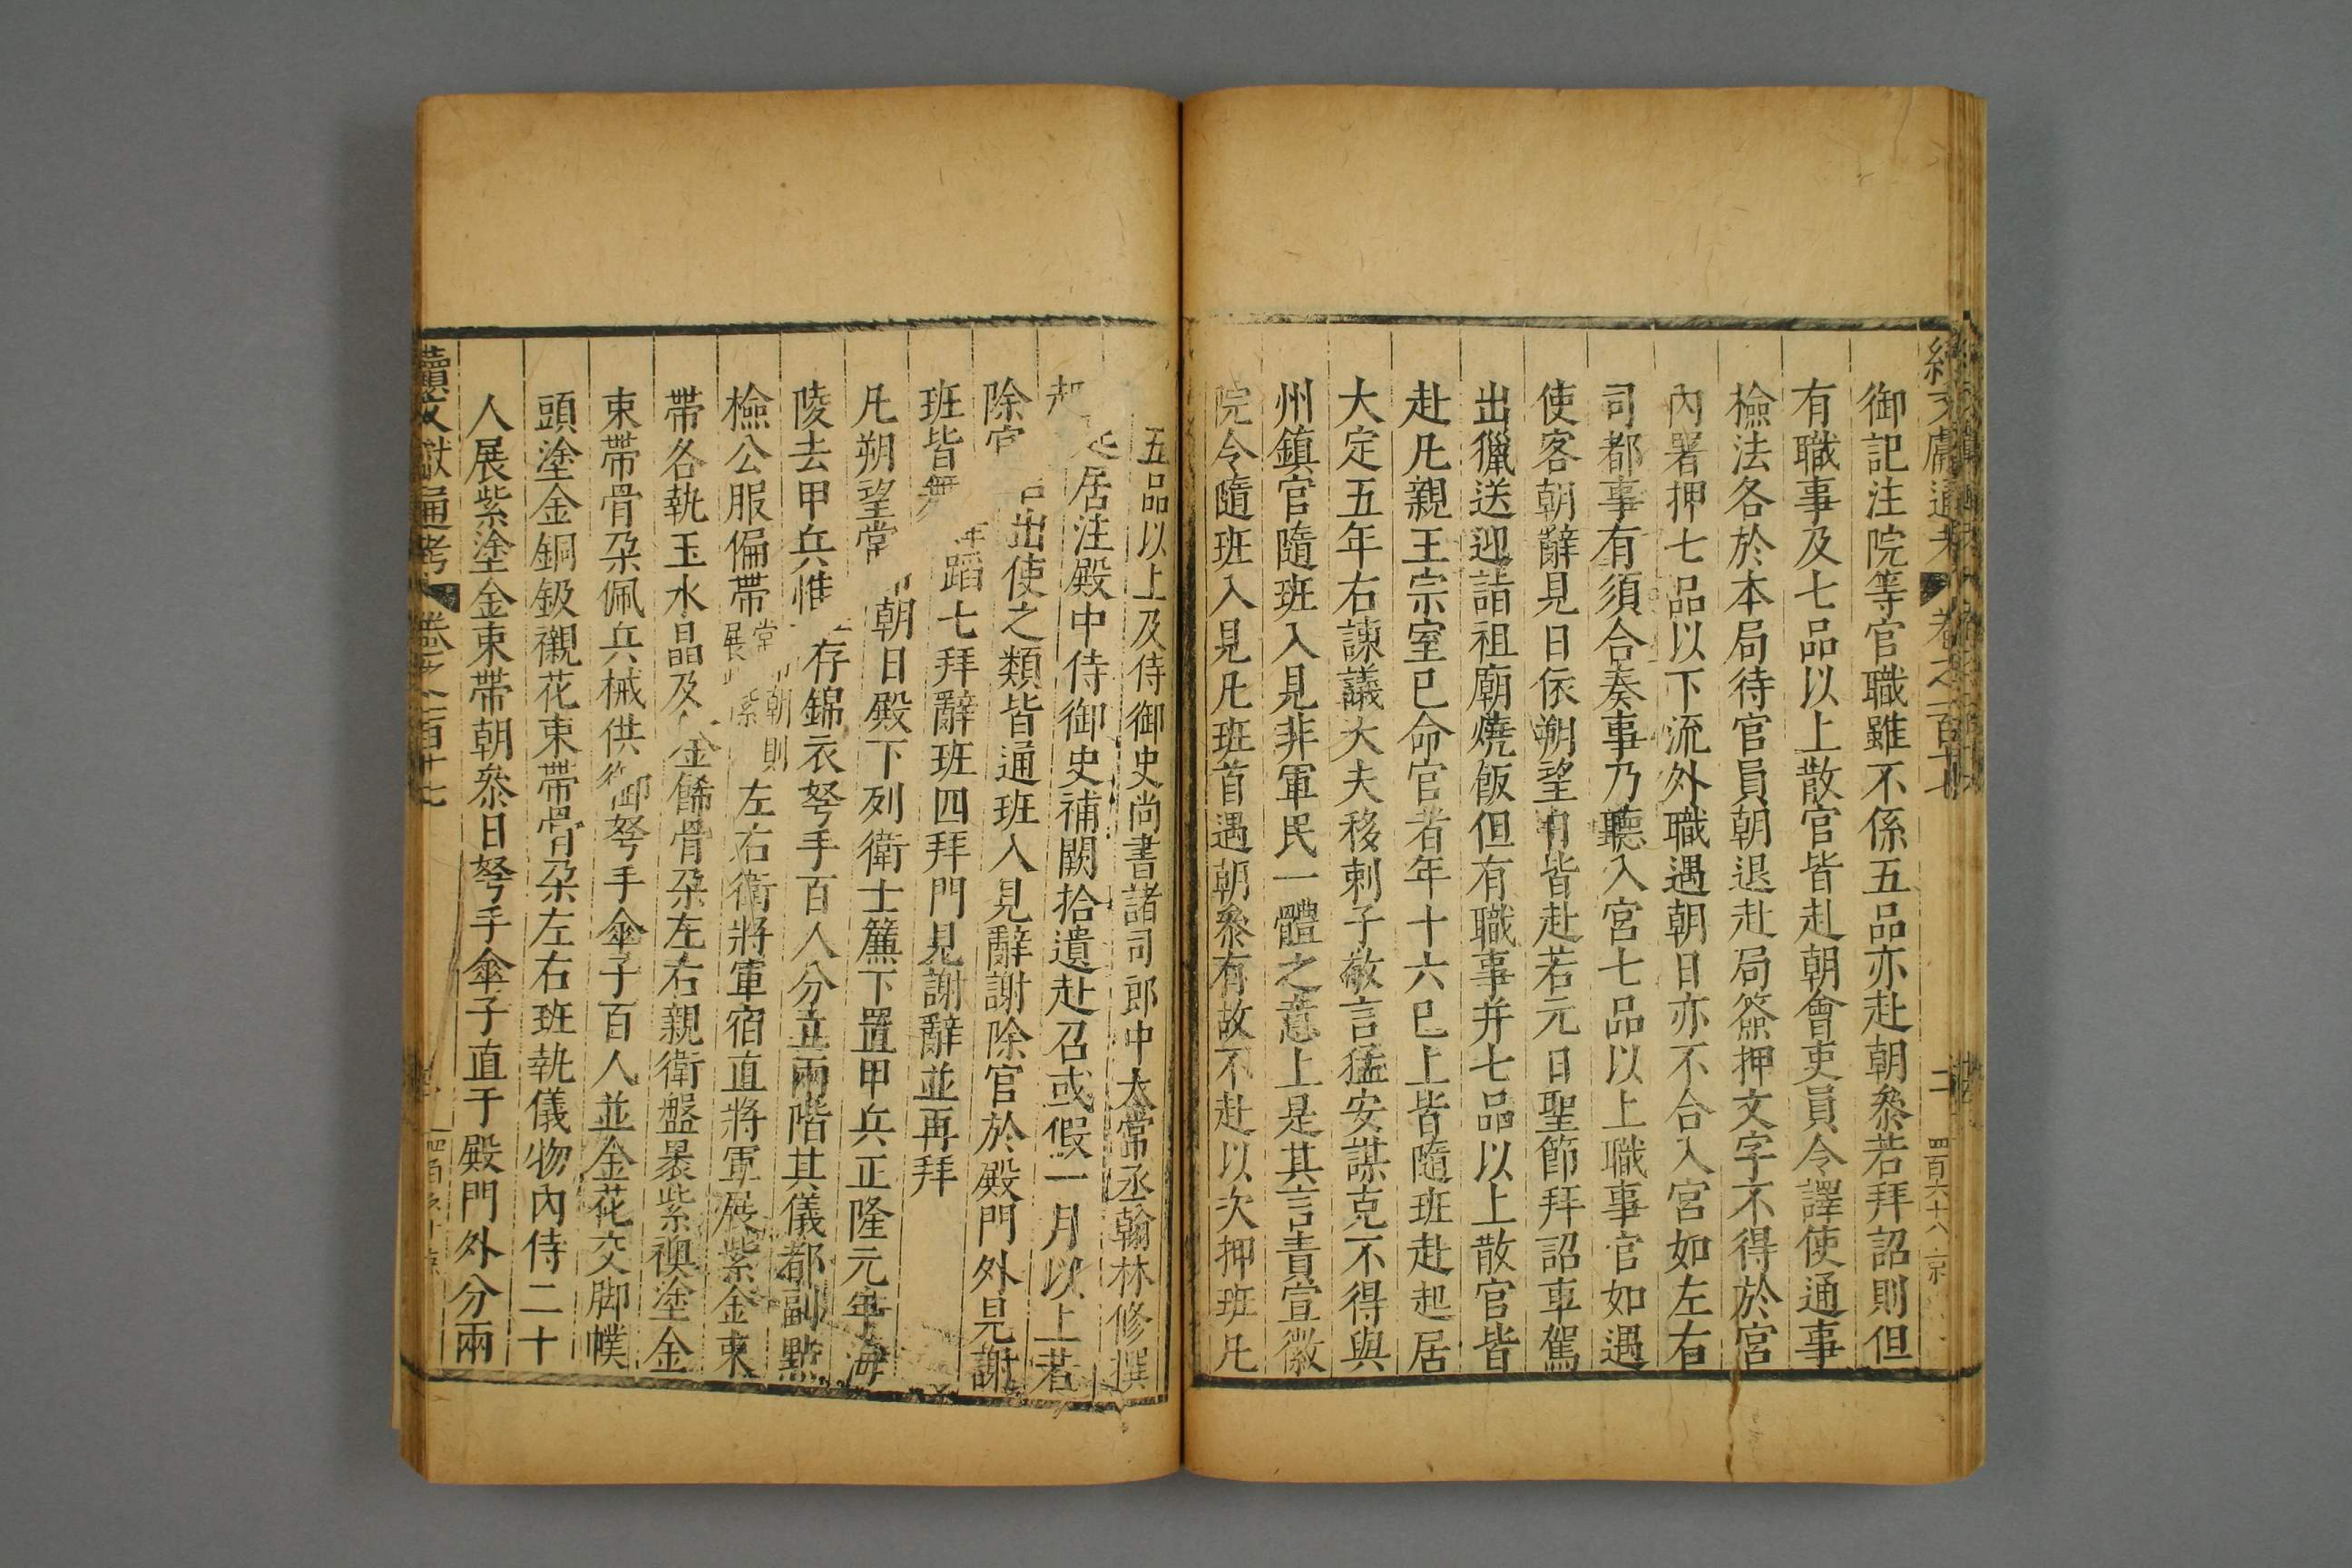 御記注院等官職雖不係五品亦赴朝參若拜詔則但
有職事及七品以上散官皆赴朝會吏員令譯使通事
檢法各於本局待官員朝退赴局簽押文字不得於宮
內署押七品以下流外職遇朝日亦不合入宮如左右
司都事有須合奏事乃聽入宮七品以上職事官如遇
使客朝辭見日依朔望日皆赴若元日聖節拜詔車駕
出獵送迎詣祖廟燒飯但有職事并七品以上散官皆
赴凡親王宗室已命官者年十六已上皆隨班赴起居
大定五年右諫議大夫移剌子敬言猛安謀克不得與
州鎮官隨班入見非軍民一體之意上是其言責宣徽
院令隨班入見凡班首遇朝參有故不赴以次押班凡
五品以上及侍御史尚書諸司郎中太常丞翰林修撰
起居注殿中侍御史補闕拾遺赴召或假一月以上若
除官出使之類皆通班入見辭謝除官於殿門外見謝
班皆舞蹈七拜辭班四拜門見謝辭並再拜
凡朔望常朝日殿下列衛士簾下置甲兵正隆元年海
陵去甲兵惟存錦衣弩手百人分立兩階其儀都副點
檢公服偏帶常朝則展紫左右衛將軍宿直將軍展紫金束
帶各執玉水晶及金飾骨朵左右親衛盤裹紫襖塗金
束帶骨朵佩兵械供御弩手傘子百人並金花交脚幞
頭塗金銅鈒襯花束帶骨朵左右班執儀物內侍二十
人展紫塗金束帶朝參日弩手傘子直于殿門外分兩
續文獻通考 卷之一百十七